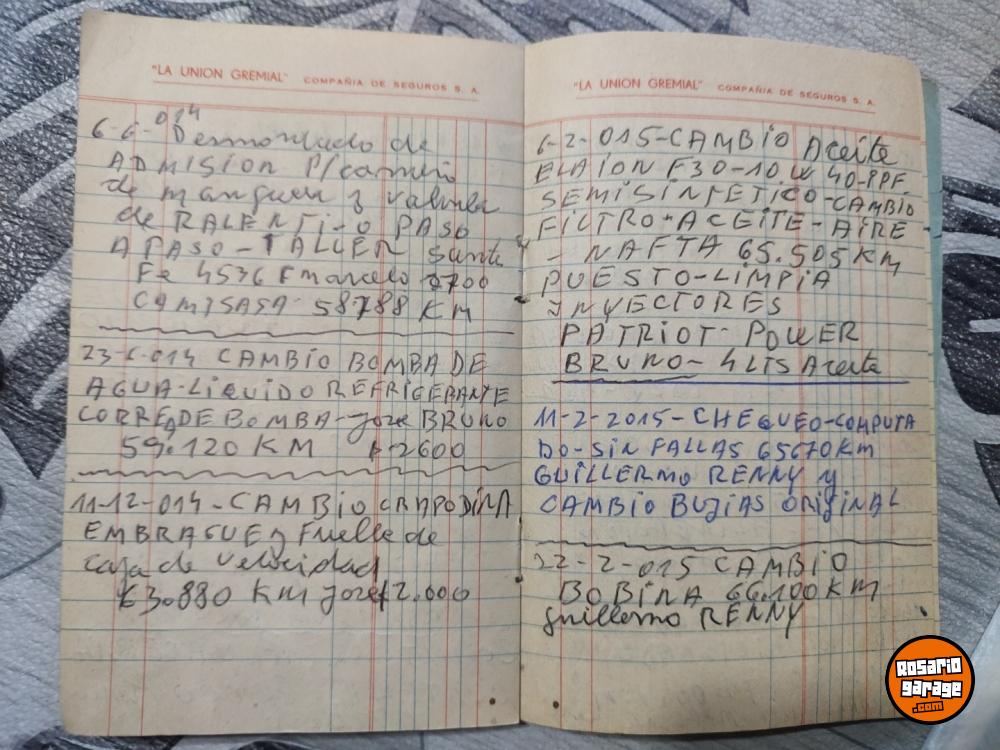 "LA UNION GREMIAL" COMPAÑIA DE SEGUROS S. A.
6-6-014 Desmontado de
ADMISION P/cambio
de manguera y valvula
de RALENTI-O PASO
A PASO-TALLER Santa
Fe 4536 Fmarcelo $700
CAMISASA 58788 KM
23-6-014 CAMBIO BOMBA DE
AGUA-LIQUIDO REFRIGERANTE
CORREA DE BOMBA-Jose BRUNO
59.120 KM $2600
11-12-014-CAMBIO CRAPODINA
EMBRAGUE y Fuelle de
caja de velocidad
63.880 KM Jose $2.000
"LA UNION GREMIAL" COMPAÑIA DE SEGUROS S. A.
6-2-015-CAMBIO Aceite
ELAION F30-10W40-PPF
SEMISINTETICO-CAMBIO
FILTRO-ACEITE-AIRE-
-NAFTA 65.505KM
PUESTO-LIMPIA
INYECTORES
PATRIOT-POWER
BRUNO-4LTS Aceite
11-2-2015-CHEQUEO-COMPUTA
DO-SIN FALLAS 65670KM
GUILLERMO RENNY y
CAMBIO BUJIAS ORIGINAL
22-2-015 CAMBIO
BOBINA 66.100KM
Guillermo RENNY
ROSARIO
garage
.com